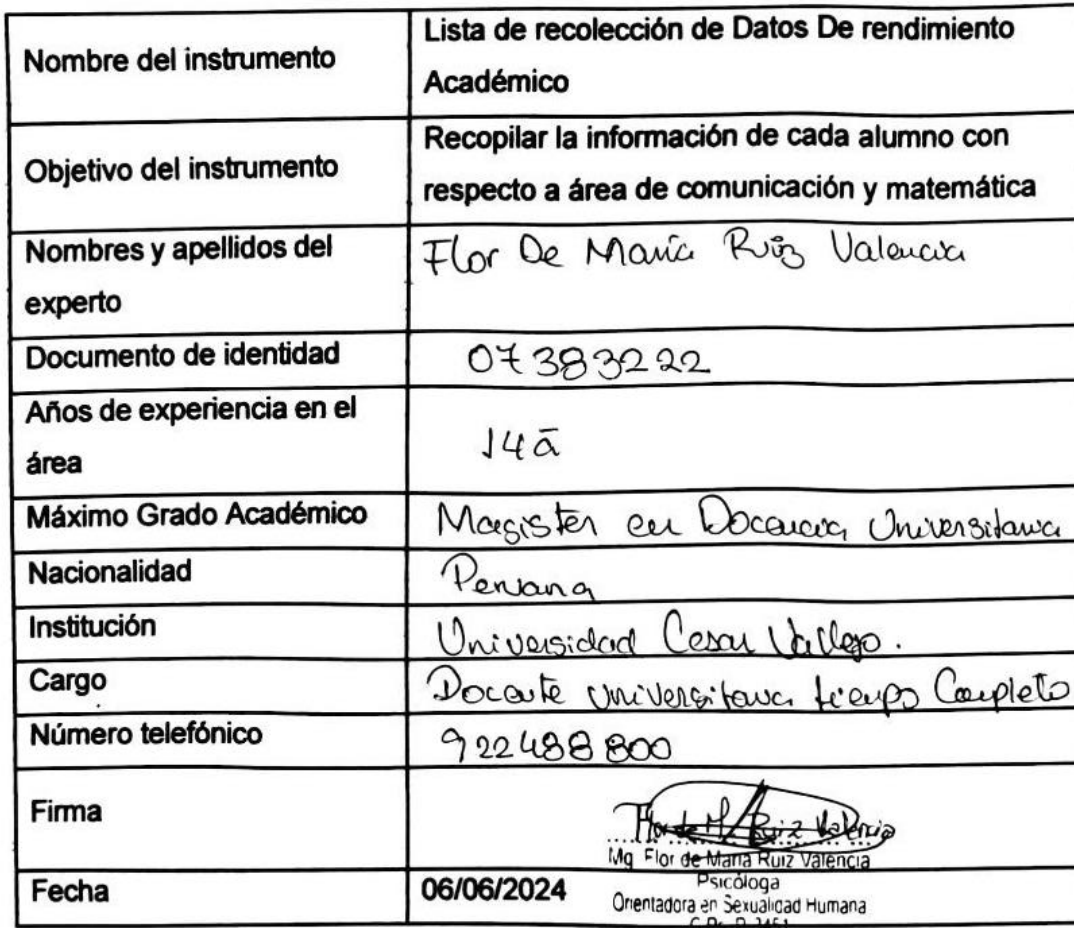 Nombre del instrumento
Lista de recolección de Datos De rendimiento
Académico
Objetivo del instrumento
Recopilar la información de cada alumno con
respecto a área de comunicación y matemática
Nombres y apellidos del
experto
Flor De María Ruiz Valencia
Documento de identidad
07383222
Años de experiencia en el
área
14 ā
Máximo Grado Académico
Magister en Docencia Universitaria
Nacionalidad
Peruana
Institución
Universidad Cesar Vallejo.
Cargo
Docente universitaria tiempo Completo
Número telefónico
922488800
Firma
Flor de M. Ruiz Valencia
Mg Flor de María Ruiz Valencia
Psicóloga
Orientadora en Sexualidad Humana
Fecha
06/06/2024